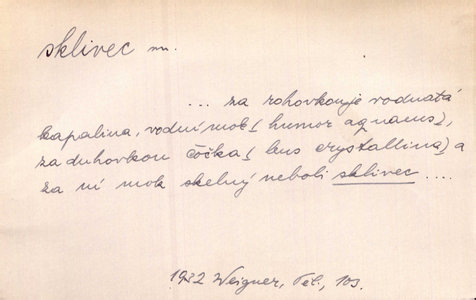 sklivec m.
... za rohovkou je vodnatá
kapalina, vodní mok ( humor aquaeus ),
za duhovkou čočka ( lens crystallina ) a
za ní mok skelný neboli sklivec ....
1932 Weigner, Těl., 103.